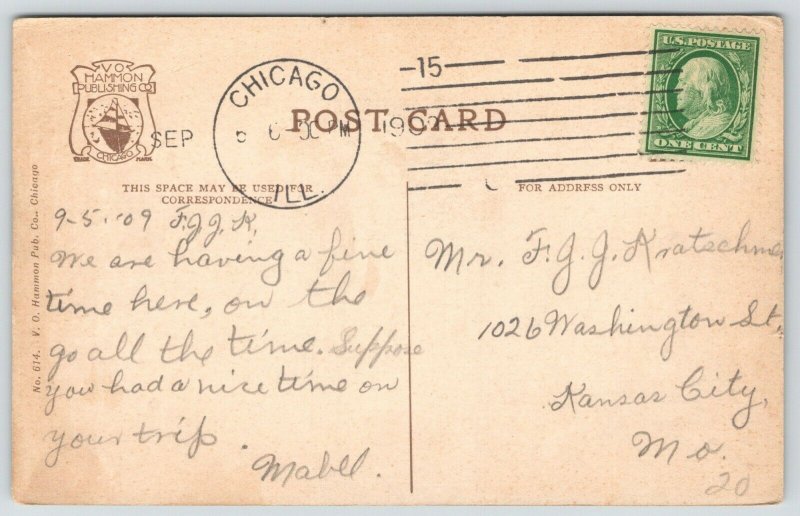 V O
HAMMON
PUBLISHING CO
CHICAGO
TRADE MARK
SEP
CHICAGO
PM
ILL.
15
U.S. POSTAGE
ONE CENT
POST CARD
THIS SPACE MAY BE USED FOR
CORRESPONDENCE
FOR ADDRESS ONLY
No. 614. V. O. Hammon Pub. Co., Chicago
9-5-'09 F.J.J.K.
We are having a fine
time here, on the
go all the time. Suppose
you had a nice time on
your trip.
Mabel.
Mr. F. J. J. Kratschmer
1026 Washington St.,
Kansas City,
Mo.
20